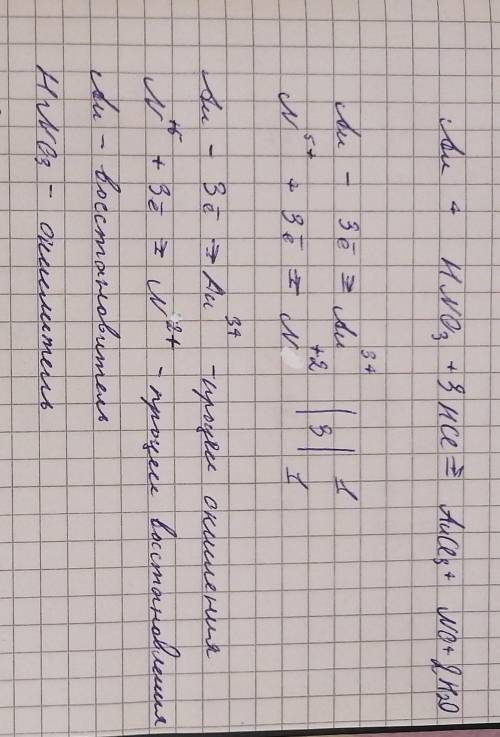 Au + HNO₃ + 3HCl = AuCl₃ + NO + 2H₂O
Au - 3ē = Au³⁺ | 3 | 1
N⁵⁺ + 3ē = N⁺² | | 1
Au - 3ē = Au³⁺ - процесс окисления
N⁺⁵ + 3ē = N²⁺ - процесс восстановления
Au - восстановитель
HNO₃ - окислитель